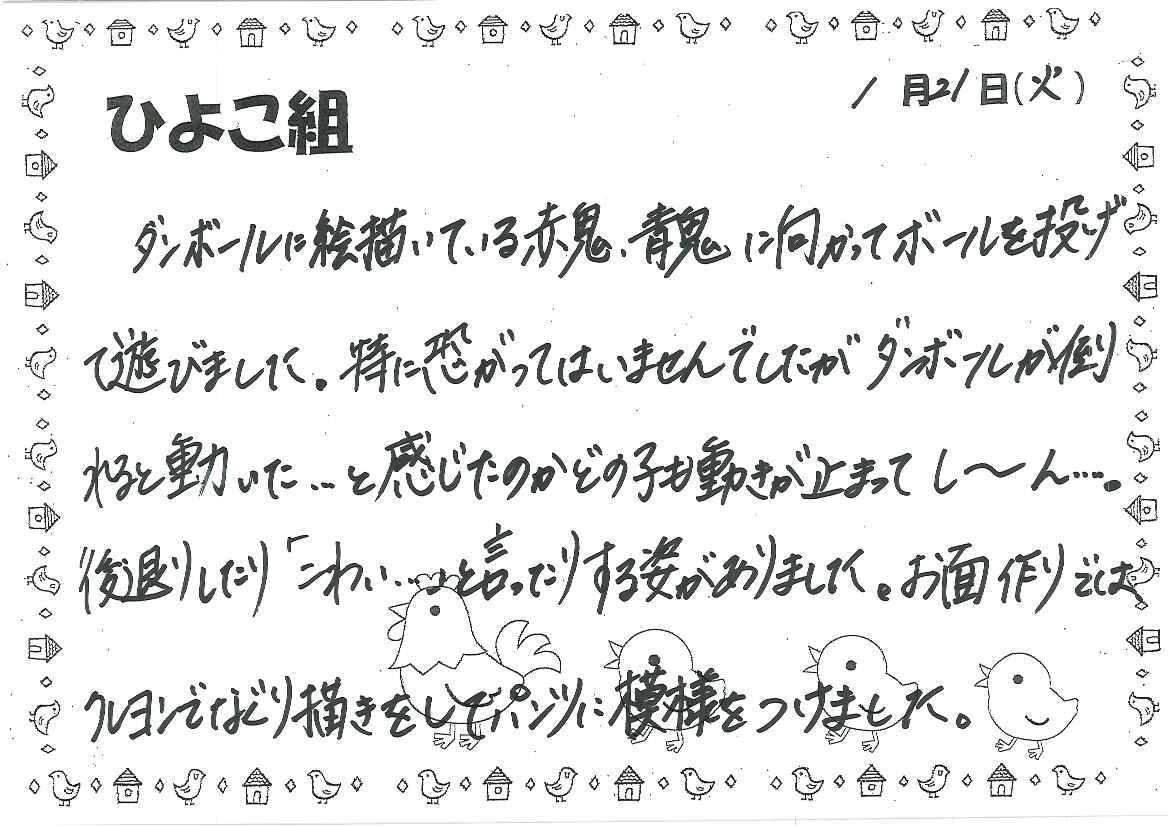 ひよこ組
1月21日(火)
ダンボールに絵描いている赤鬼、青鬼に向かってボールを投げ
て遊びました。特に恐がってはいませんでしたがダンボールが倒
れると動いた…と感じたのかどの子も動きが止まってし〜ん….。
後退りしたり「こわい…」と言ったりする姿がありました。お面作りでは、
クレヨンでなぐり描きをしてパンツに模様をつけました。